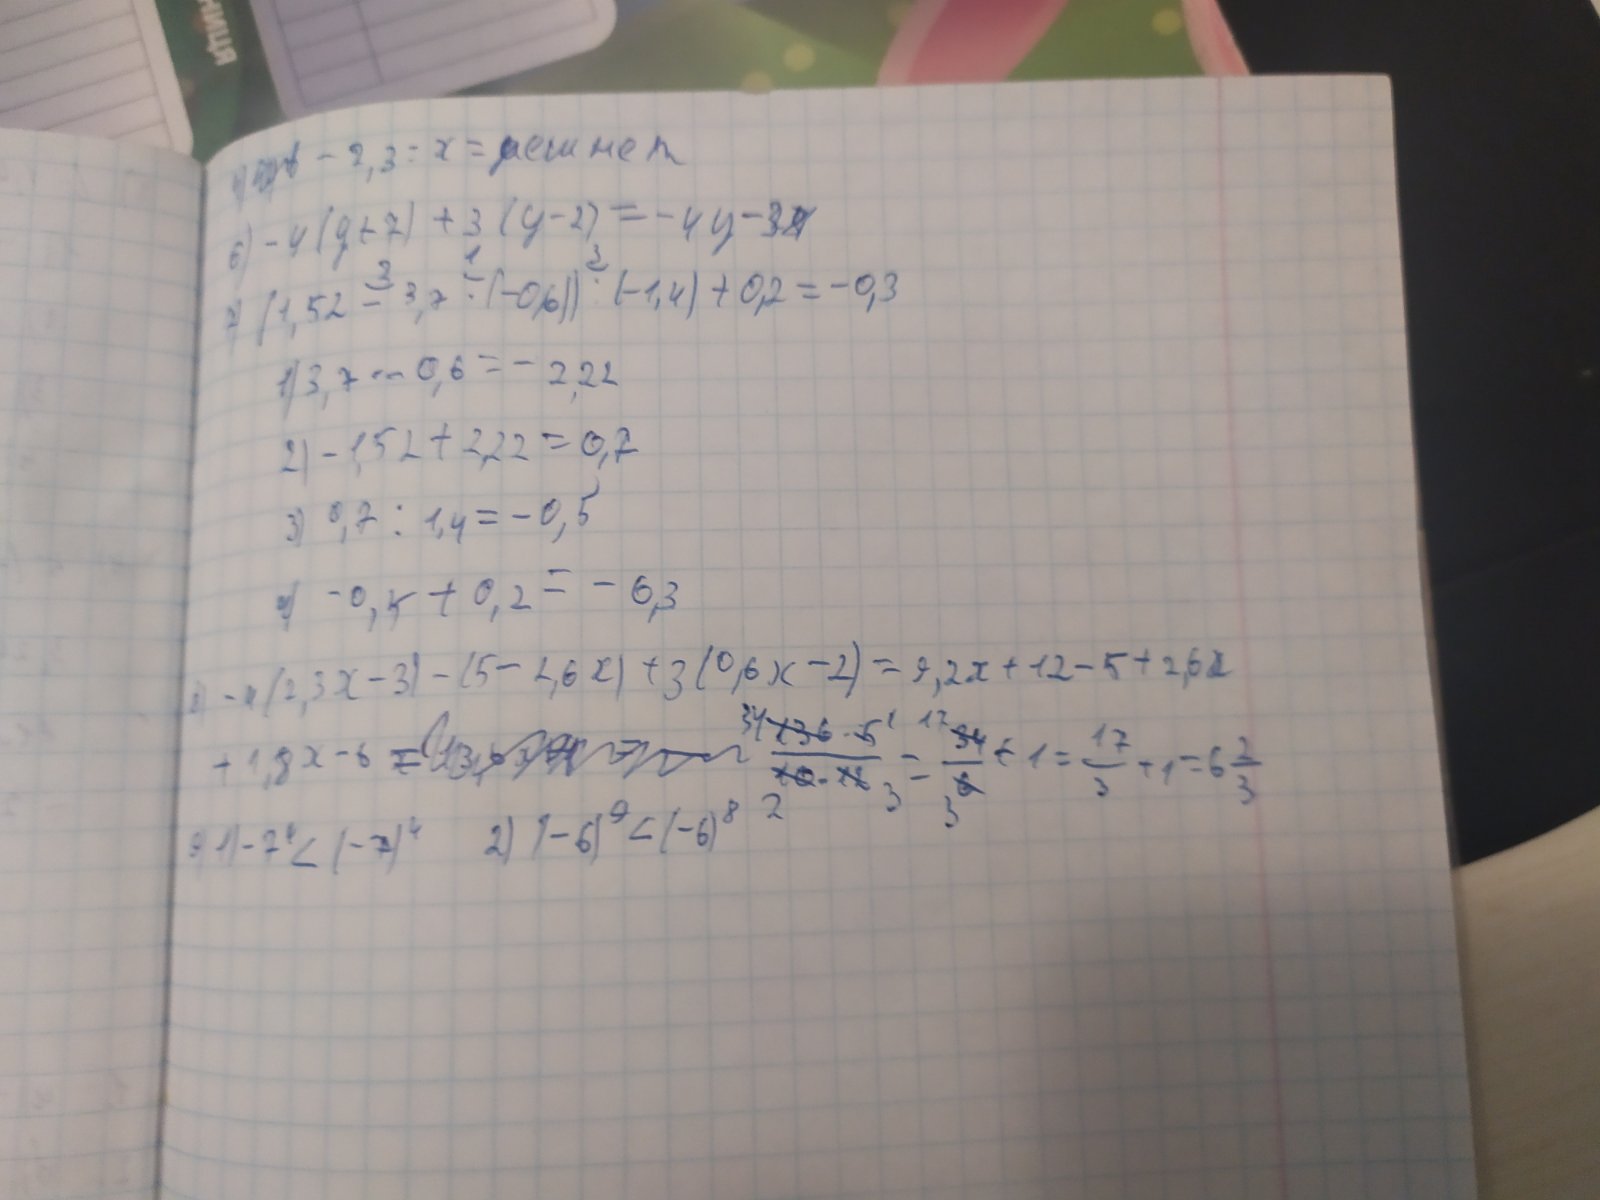 НИЦЯ
- 2,3 : x = реш нет
6) -4(y+7) + 3(y-2) = -4y-34
7) (1,52 - 3,7 · (-0,6)) : (-1,4) + 0,2 = -0,3
3 1 2
1) 3,7 · -0,6 = - 2,22
2) -1,52 + 2,22 = 0,7
3) 0,7 : 1,4 = -0,5
4) -0,5 + 0,2 = - 0,3
8) -4(2,3x-3) - (5-2,6x) + 3(0,6x-2) = 9,2x+12-5+2,6x
+1,8x-6 = 34 136·5 1 / 10·12 2 3 = 17 34 / 6 3 + 1 = 17/3 + 1 = 6 2/3
9) 1) -7⁴ < (-7)⁴ 2) (-6)⁹ < (-6)⁸